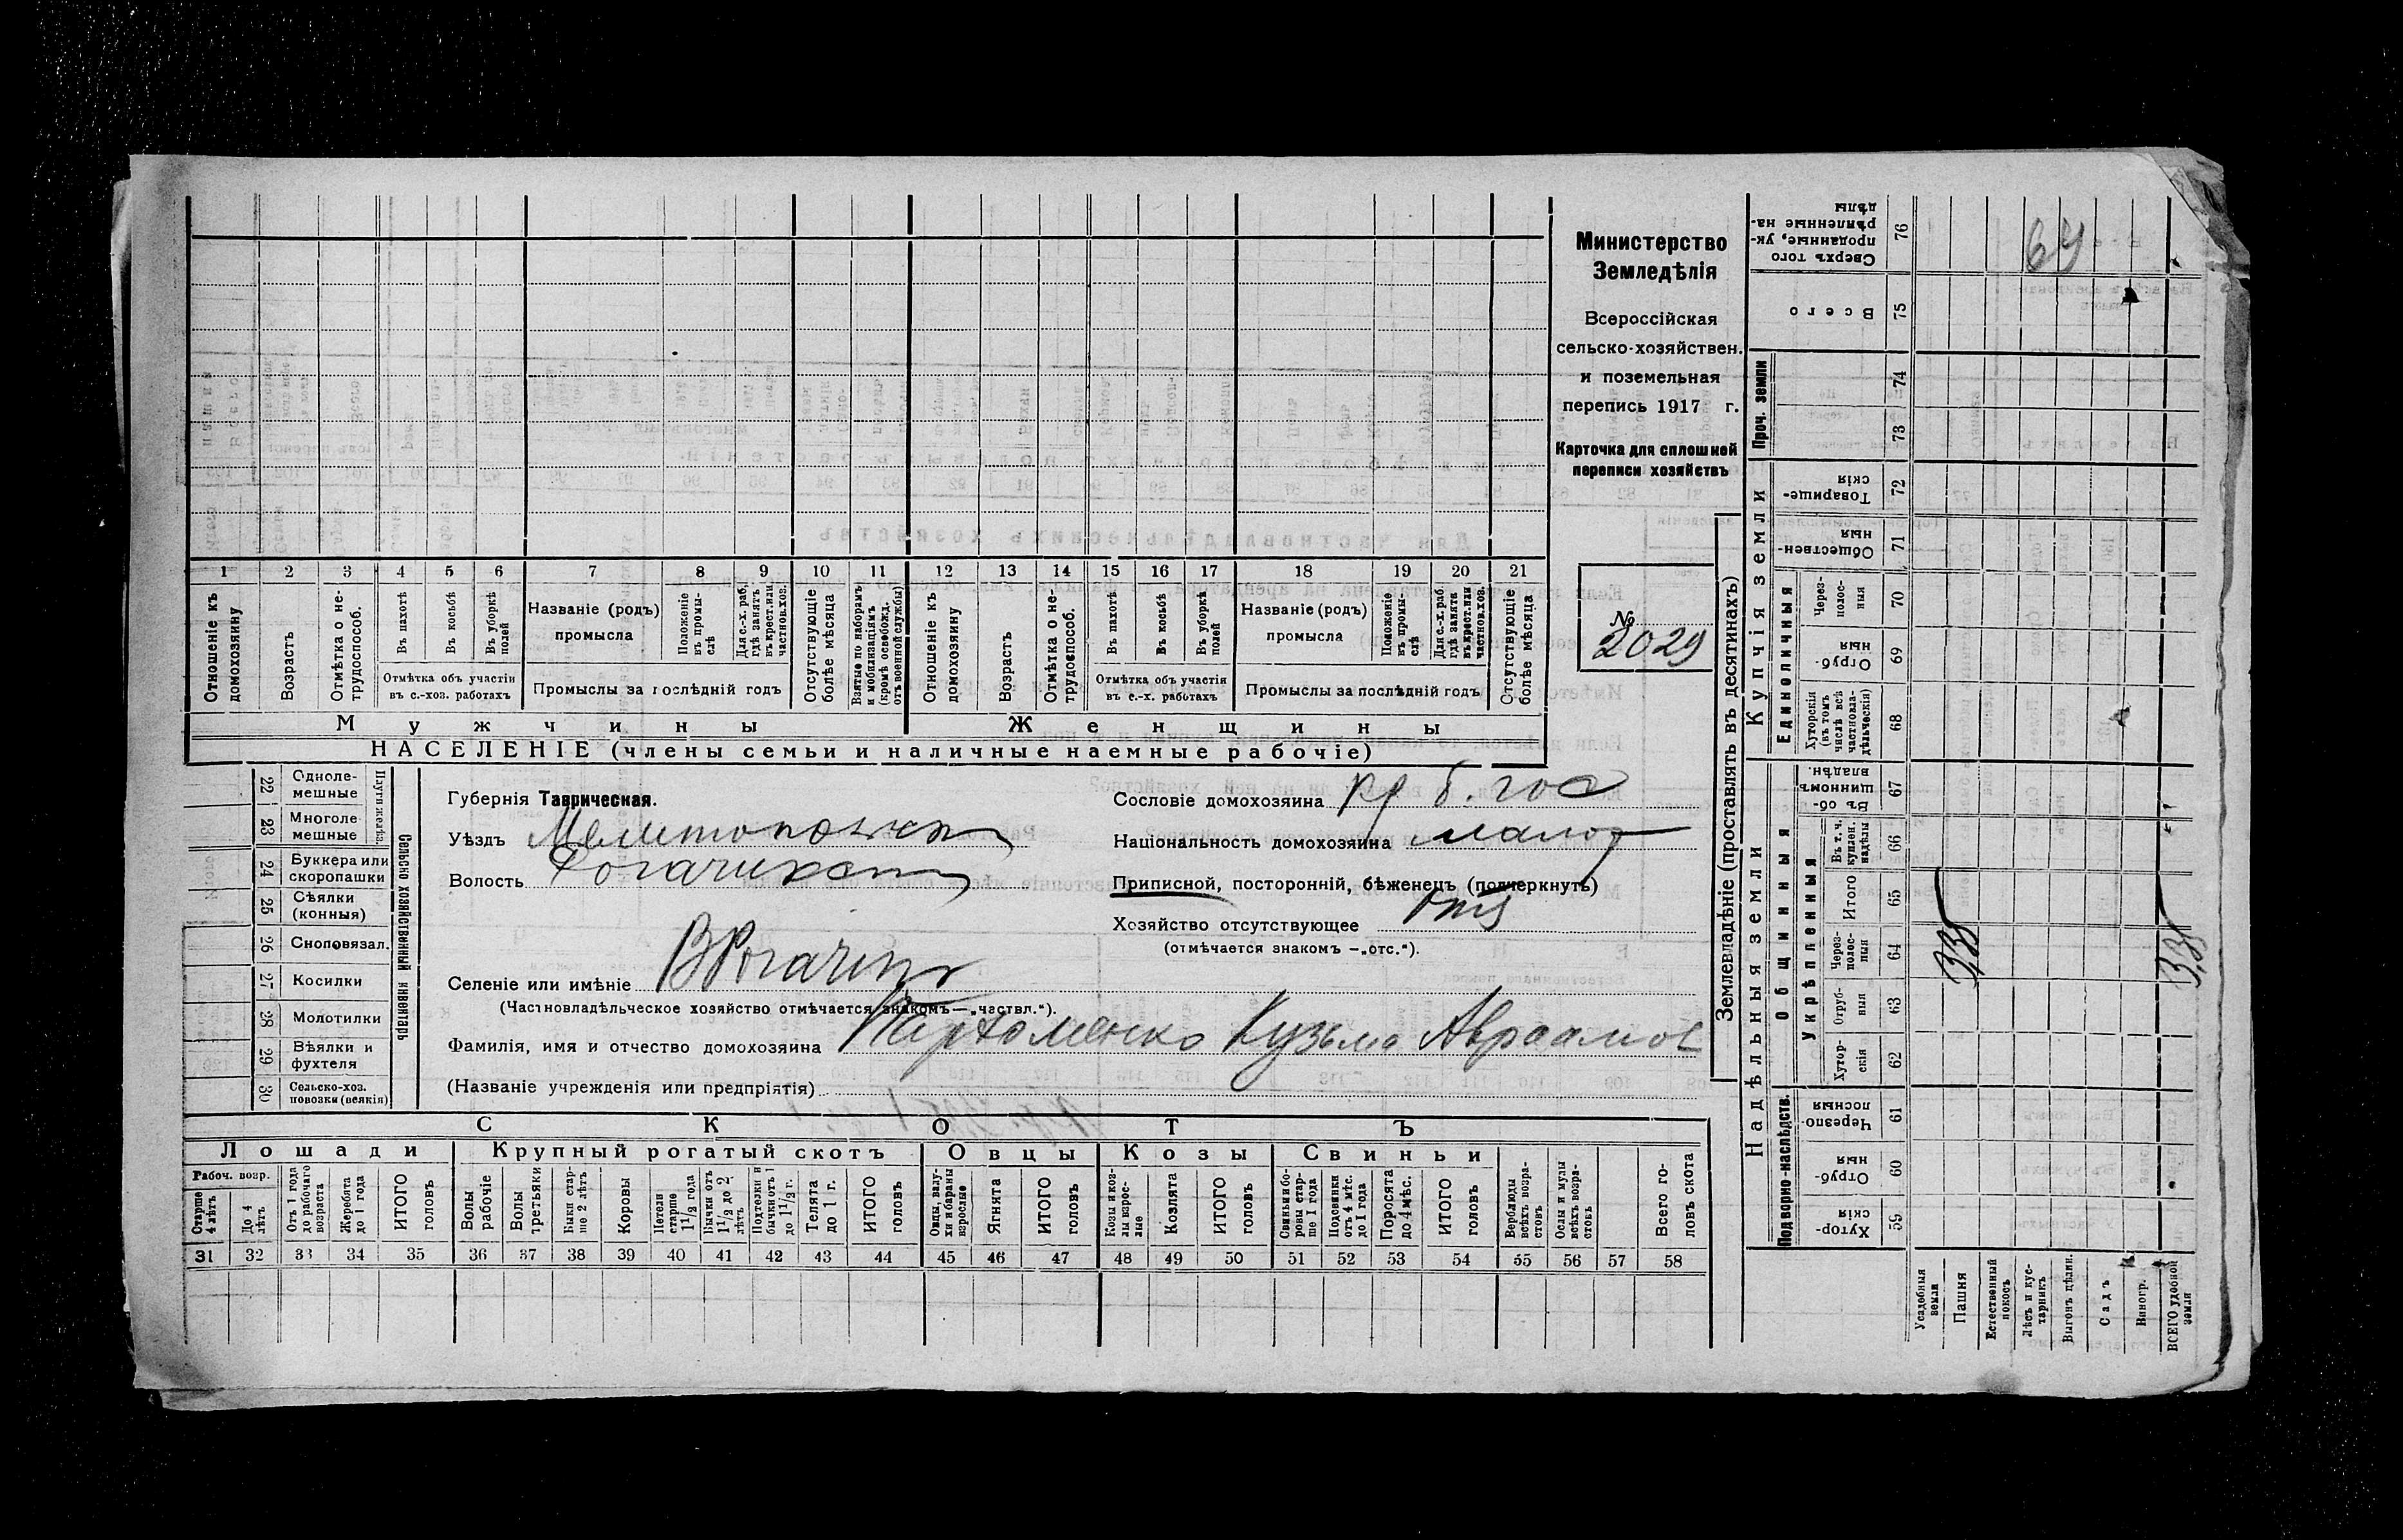 Министерство
Земледѣлія
Всероссійская
сельско-хозяйствен.
и поземельная
перепись 1917 г.
Карточка для сплошной
переписи хозяйствъ
№
2029
1 2 3 4 5 6 7 8 9 10 11 12 13 14 15 16 17 18 19 20 21
Отношеніе къ домохозяину
Возрастъ
Отмѣтка о не-трудоспособ.
Въ пахотѣ
Въ косьбѣ
Въ уборкѣ полей
Отмѣтка объ участіи въ с.-хоз. работахъ
Названіе (родъ) промысла
Положеніе въ промы-слѣ
Для с.-х. раб. гдѣ занятъ въ крест. или частнов. хоз.
Промыслы за послѣдній годъ
Отсутствующіе болѣе мѣсяца
Взятые по наборамъ и мобилизаціямъ (кромѣ освобожд. отъ военной службы)
Отношеніе къ домохозяину
Возрастъ
Отмѣтка о не-трудоспособ.
Въ пахотѣ
Въ косьбѣ
Въ уборкѣ полей
Отмѣтка объ участіи въ с.-х. работахъ
Названіе (родъ) промысла
Положеніе въ промы-слѣ
Для с.-х. раб. гдѣ занята въ крест. или частнов. хоз.
Промыслы за послѣдній годъ
Отсутствующіе болѣе мѣсяца
Мужчины
Женщины
НАСЕЛЕНІЕ (члены семьи и наличные наемные рабочіе)
22 Одноле-мешные
23 Многоле-мешные
Плуги желѣз.
24 Буккера или скоропашки
25 Сѣялки (конныя)
26 Сноповязал.
27 Косилки
28 Молотилки
29 Вѣялки и фухтеля
30 Сельско-хоз. повозки (всякія)
Сельско хозяйственный инвентарь
Губернія Таврическая.
Уѣздъ Мелитопольск
Волость Рогачикск
Селеніе или имѣніе В Рогачик
(Частновладѣльческое хозяйство отмѣчается знакомъ—„частвл.“).
Фамилія, имя и отчество домохозяина Пархоменко Кузьма Авраамов
(Названіе учрежденія или предпріятія)
Сословіе домохозяина кр б. гос
Національность домохозяина малор
Приписной, посторонній, бѣженецъ (подчеркнуть)
Хозяйство отсутствующее отс
(отмѣчается знакомъ —„отс.“).
СКОТЪ
Лошади
Крупный рогатый скотъ
Овцы
Козы
Свиньи
Рабоч. возр.
Старше 4 лѣтъ
До 4 лѣтъ
Отъ 1 года до рабочаго возраста
Жеребята до 1 года
ИТОГО головъ
Волы рабочіе
Волы третьяки
Быки стар-ше 2 лѣтъ
Коровы
Нетели старше 1½ года
Бычки отъ 1½ до 2 лѣтъ
Подтелки и бычки отъ 1 до 1½ г.
Телята до 1 г.
ИТОГО головъ
Овцы, валу-хи и бараны взрослые
Ягнята
ИТОГО головъ
Козы и коз-лы взрос-лые
Козлята
ИТОГО головъ
Свиньи и бо-ровы стар-ше 1 года
Подсвинки отъ 4 мѣс. до 1 года
Поросята до 4 мѣс.
ИТОГО головъ
Верблюды всѣхъ возра-стовъ
Ослы и мулы всѣхъ возра-стовъ
Всего го-ловъ скота
31 32 33 34 35 36 37 38 39 40 41 42 43 44 45 46 47 48 49 50 51 52 53 54 55 56 57 58
Землевладѣніе (проставлять въ десятинахъ)
Купчія земли
Надѣльныя земли
Проч. земли
Единоличныя
Общинныя
Укрѣпленныя
Подворно-наслѣдств.
Сверхъ того проданные, ук-рѣпленные на-дѣлы 76
64
Всего 75
74
73
Товарище-скія 72
Обществен-ныя 71
Через-полос-ныя 70
Отруб-ныя 69
Хуторскія (въ томъ числѣ всѣ частновла-дѣльческія) 68
Въ об-щинномъ владѣн. 67
Въ т. ч. куплен. надѣлы 66
Итого 65
Через-полос-ныя 64
Отруб-ныя 63
Хутор-скія 62
Черезпо-лосныя 61
Отруб-ныя 60
Хутор-скія 59
Усадебныя земля
Пашня
Естественный покосъ
Лѣсъ и кус-тарникъ
Выгонъ цѣлин.
Садъ
Виногр.
ВСЕГО удобной земли